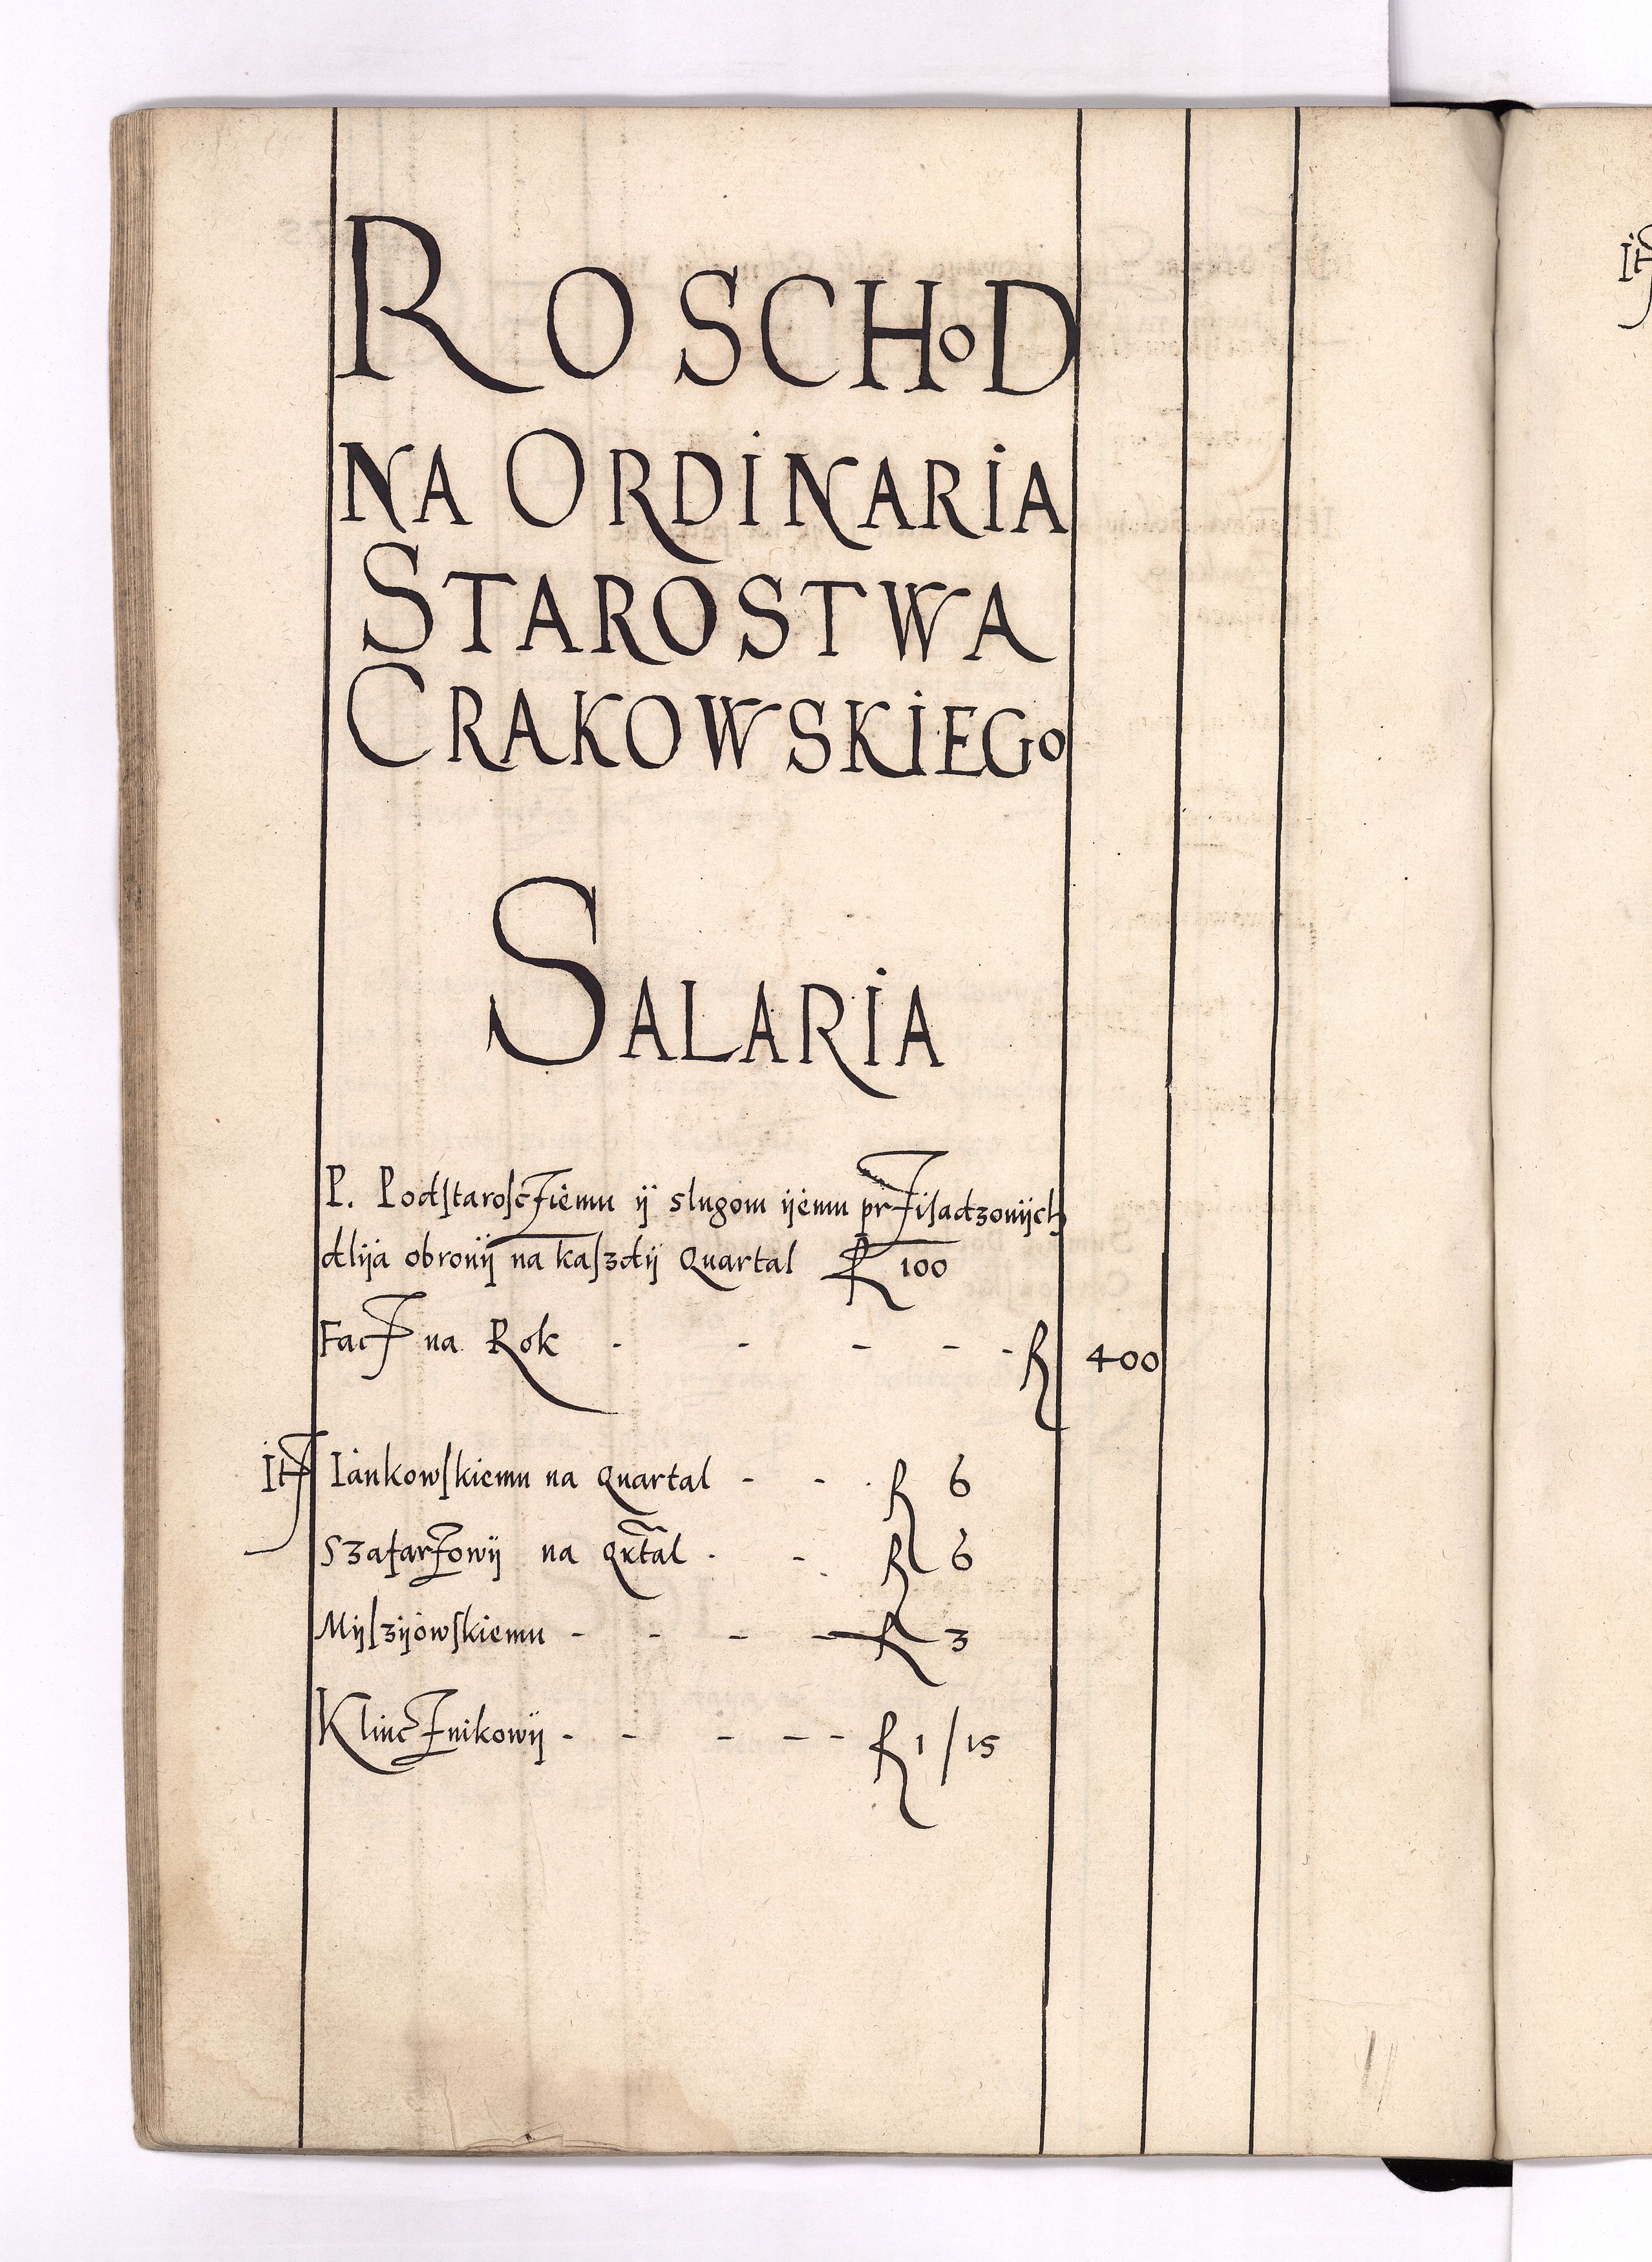 ROSCHoD
NA ORDINARIA
STAROSTWA
CRAKOWSKIEGo
SALARIA
P. Podstaroscziemu ÿ slugom ÿemu przisadzonÿch
dlÿa obronÿ na kaszdÿ Quartal R 100
Facit na Rok - - - - - R 400
Itẽ Iankowskiemu na Quartal - - . R 6
Szafarzowÿ na Qrtal . - R 6
Mÿszÿowskiemu - - - - R 3
Klucznikowÿ - - - - - R 1/15